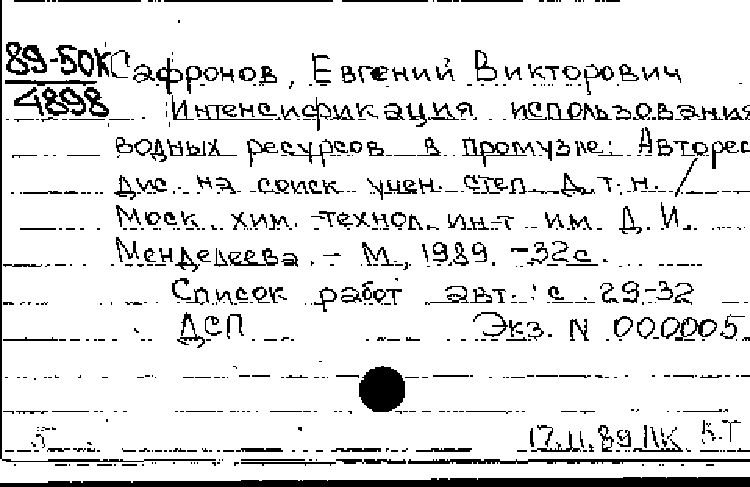 89-50К
4898
Сафронов, Евгений Викторович
Интенсификация использования
водных ресурсов в промузле: Автореф
дис. на соиск учен. степ. д.т.н. /
Моск. хим.-технол. ин-т им. Д. И.
Менделеева. - М., 1989. - 32с.
Список работ авт.: с. 29-32
ДСП Экз. N 000005
5 17.11.89 ЛК